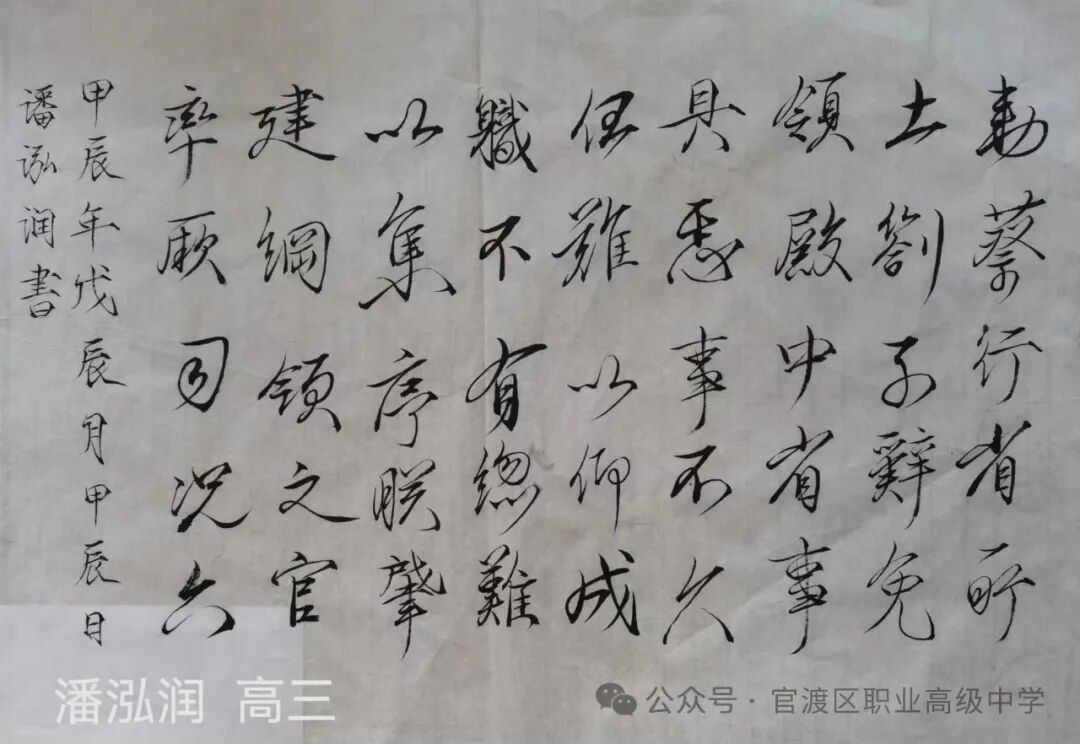 勅蔡行省所
上劄子辭免
領殿中省事
具悉事不久
任難以仰成
職不有總難
以集序朕肇
建綱領文官
率厥司况六
甲辰年戊辰月甲辰日
潘泓润書
潘泓润 高三
公众号·官渡区职业高级中学